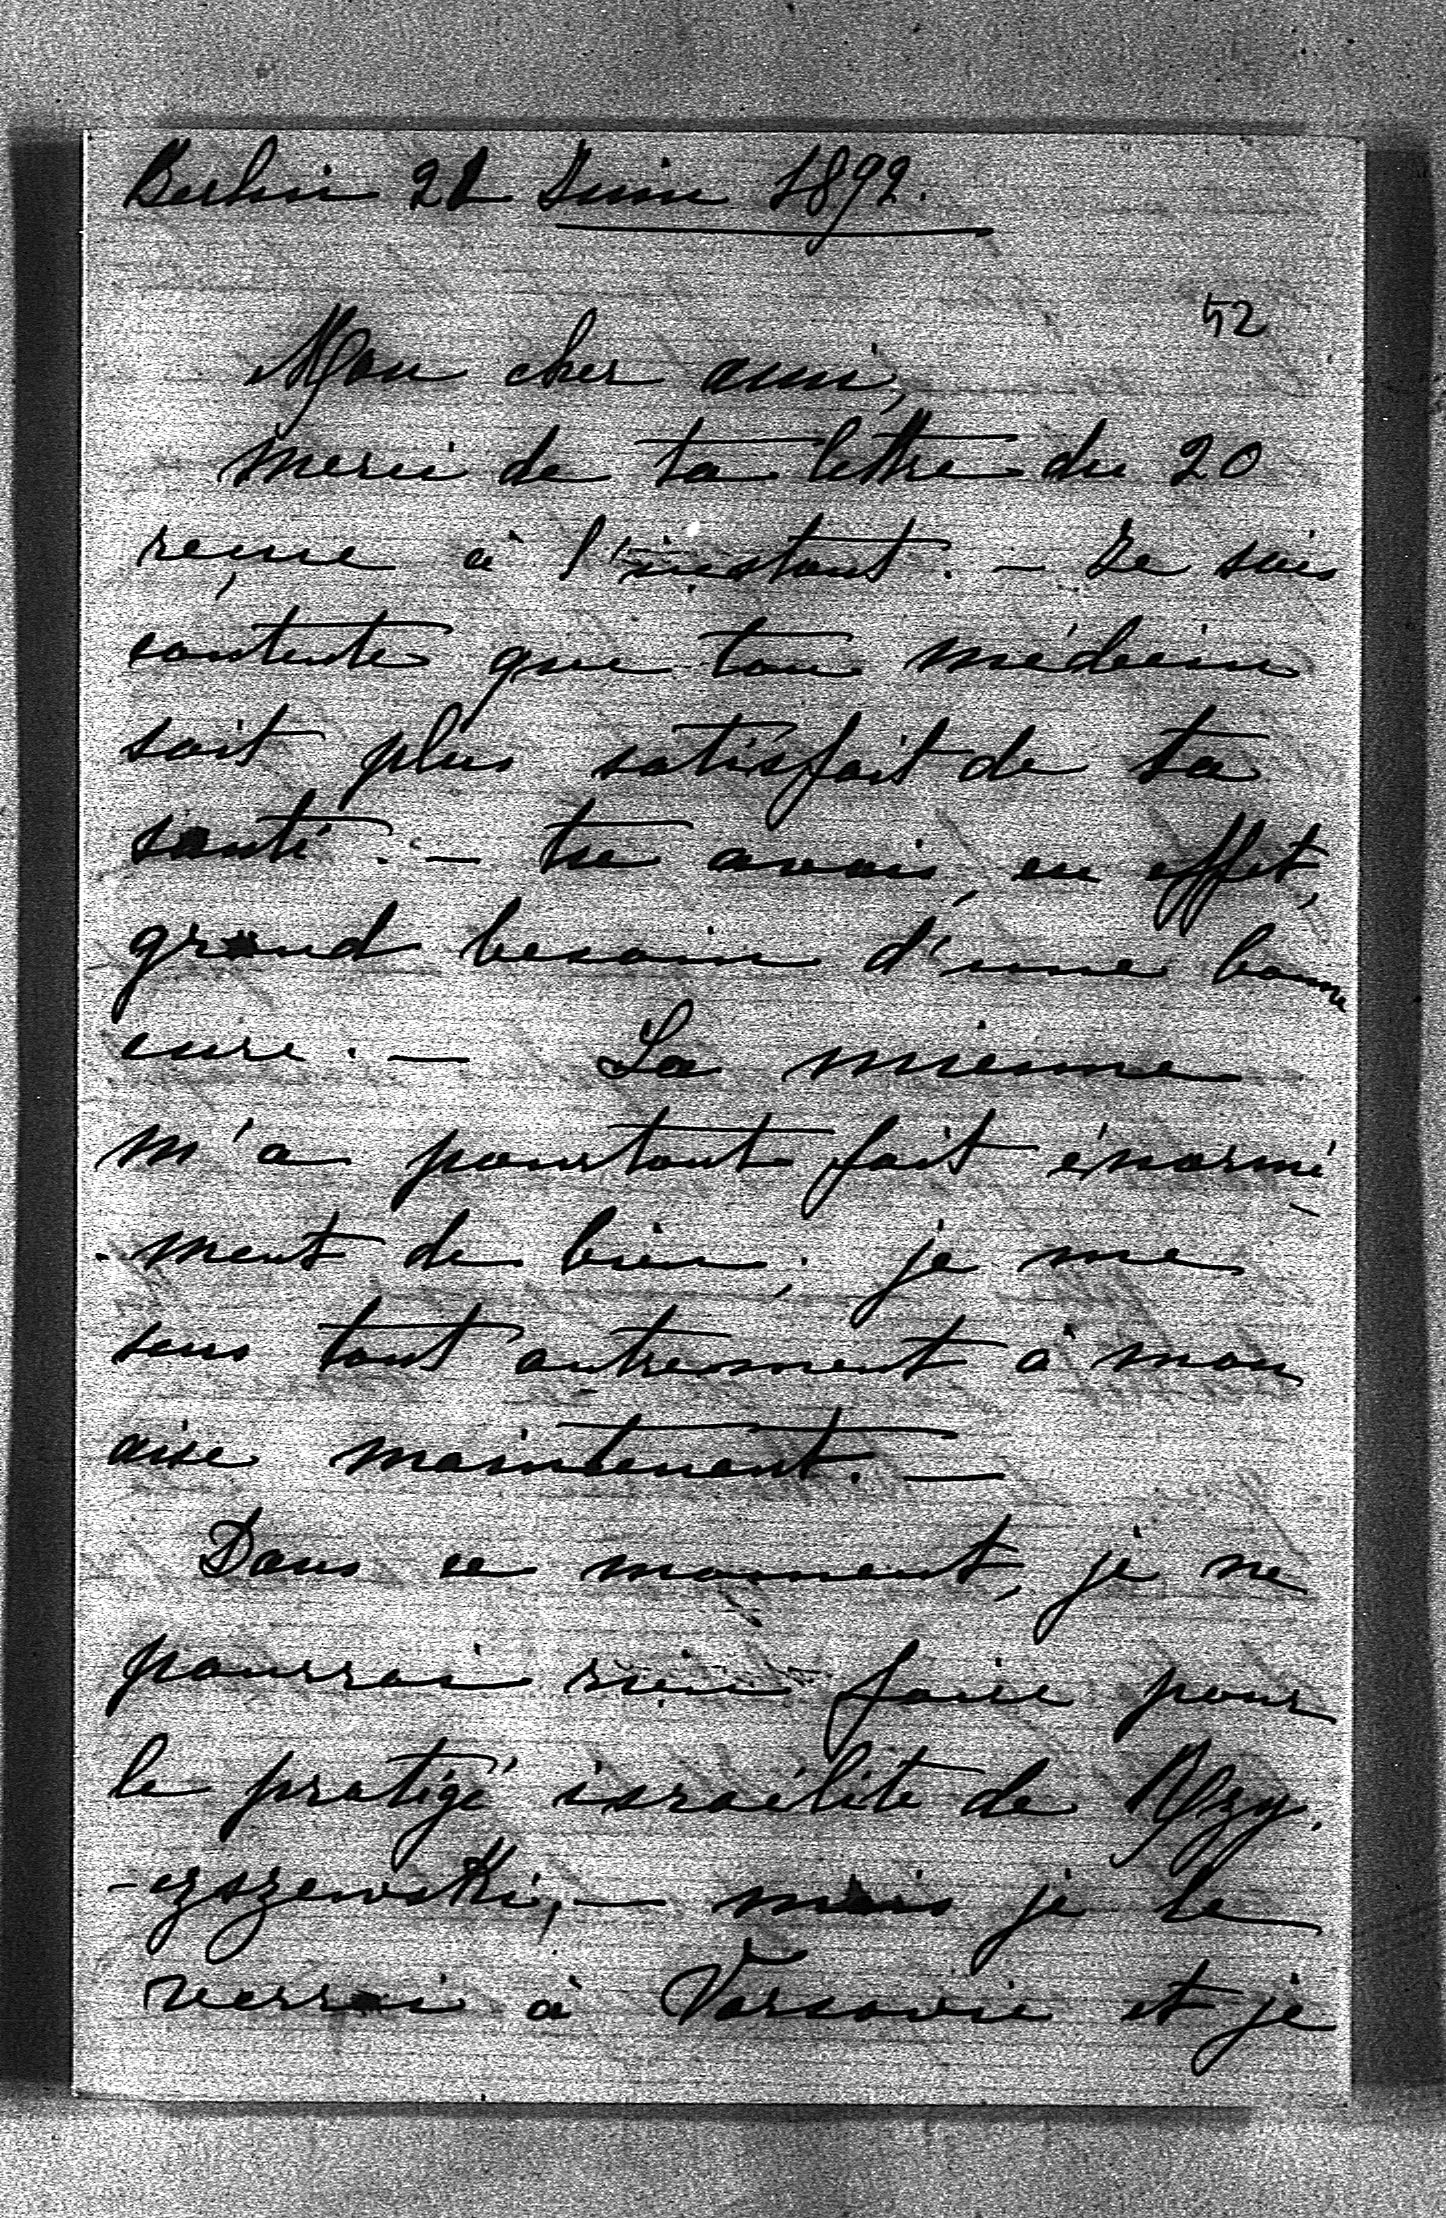 Berlin 22 Juin 1892.
52
Mon cher ami,
Merci de ta lettre du 20
reçue à l'instant. — Je suis
contente que ton médecin
soit plus satisfait de ta
santé. — tu avais, en effet,
grand besoin d'une bonne
cure. — La mienne
m'a pourtant fait énormé
-ment de bien; je me
sens tout autrement à mon
aise maintenant. —
Dans ce moment, je ne
pourrai rien faire pour
le protégé israélite de
mais je le
verrai à Varsovie et je